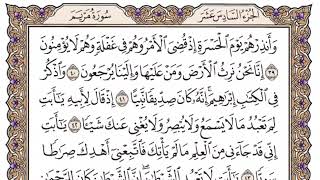 الجزء السادس عشر سورة مريم
وَأَنذِرْهُمْ يَوْمَ الْحَسْرَةِ إِذْ قُضِيَ الْأَمْرُ وَهُمْ فِي غَفْلَةٍ وَهُمْ لَا يُؤْمِنُونَ
٣٩ إِنَّا نَحْنُ نَرِثُ الْأَرْضَ وَمَنْ عَلَيْهَا وَإِلَيْنَا يُرْجَعُونَ ٤٠ وَاذْكُرْ
فِي الْكِتَابِ إِبْرَاهِيمَ إِنَّهُ كَانَ صِدِّيقًا نَّبِيًّا ٤١ إِذْ قَالَ لِأَبِيهِ يَا أَبَتِ
لِمَ تَعْبُدُ مَا لَا يَسْمَعُ وَلَا يُبْصِرُ وَلَا يُغْنِي عَنكَ شَيْئًا ٤٢ يَا أَبَتِ
إِنِّي قَدْ جَاءَنِي مِنَ الْعِلْمِ مَا لَمْ يَأْتِكَ فَاتَّبِعْنِي أَهْدِكَ صِرَاطًا